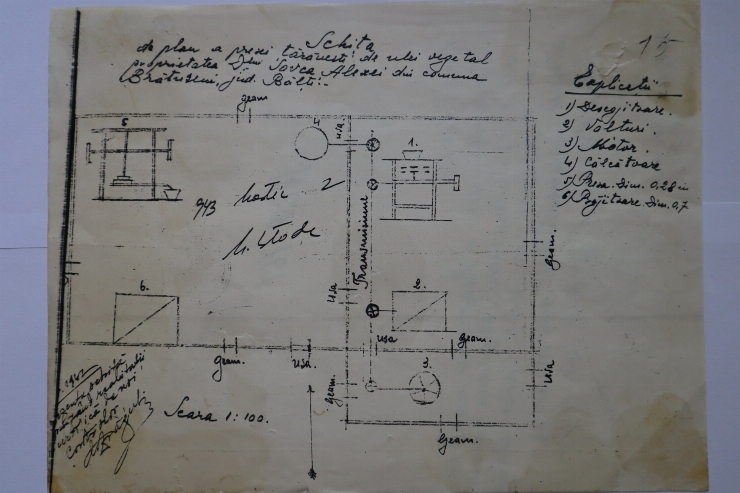 15
Schita
de plan a presei țărănești de ulei vegetal
proprietatea Dlui Iovca Alexei din comuna
Brătușeni, jud. Bălți.-
Explicații
1) Desegjitoare.
2) Volturi.
3) Motor.
4) Călcătoare
5) Presa. Dim. 0,28 m
6) Prăjitoare Dim. 0,7
geam
5
4
usa.
1.
943
2
Transmisiune
geam.
usa
6.
2.
usa
geam.
geam.
usa.
3.
usa
geam.
geam.
Scara 1:100.
1942